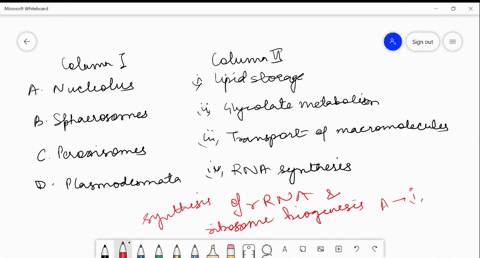 Microsoft Whiteboard
Sign out
Column I
Column II
A. Nucleolus
i, Lipid storage
B. Sphaerosomes
ii, Glycolate metabolism
C. Peroxisomes
iii, Transport of macromolecules
D. Plasmodesmata
iv, RNA synthesis
synthesis of rRNA &
ribosome biogenesis A → i,